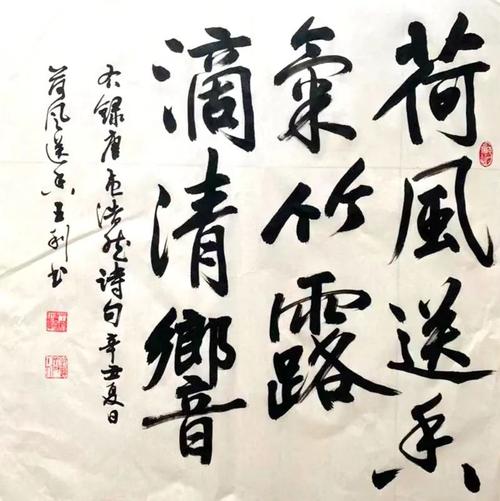 荷風送香
氣竹露
滴清響
右録唐孟浩然詩句辛丑夏日
荷风送香王利书